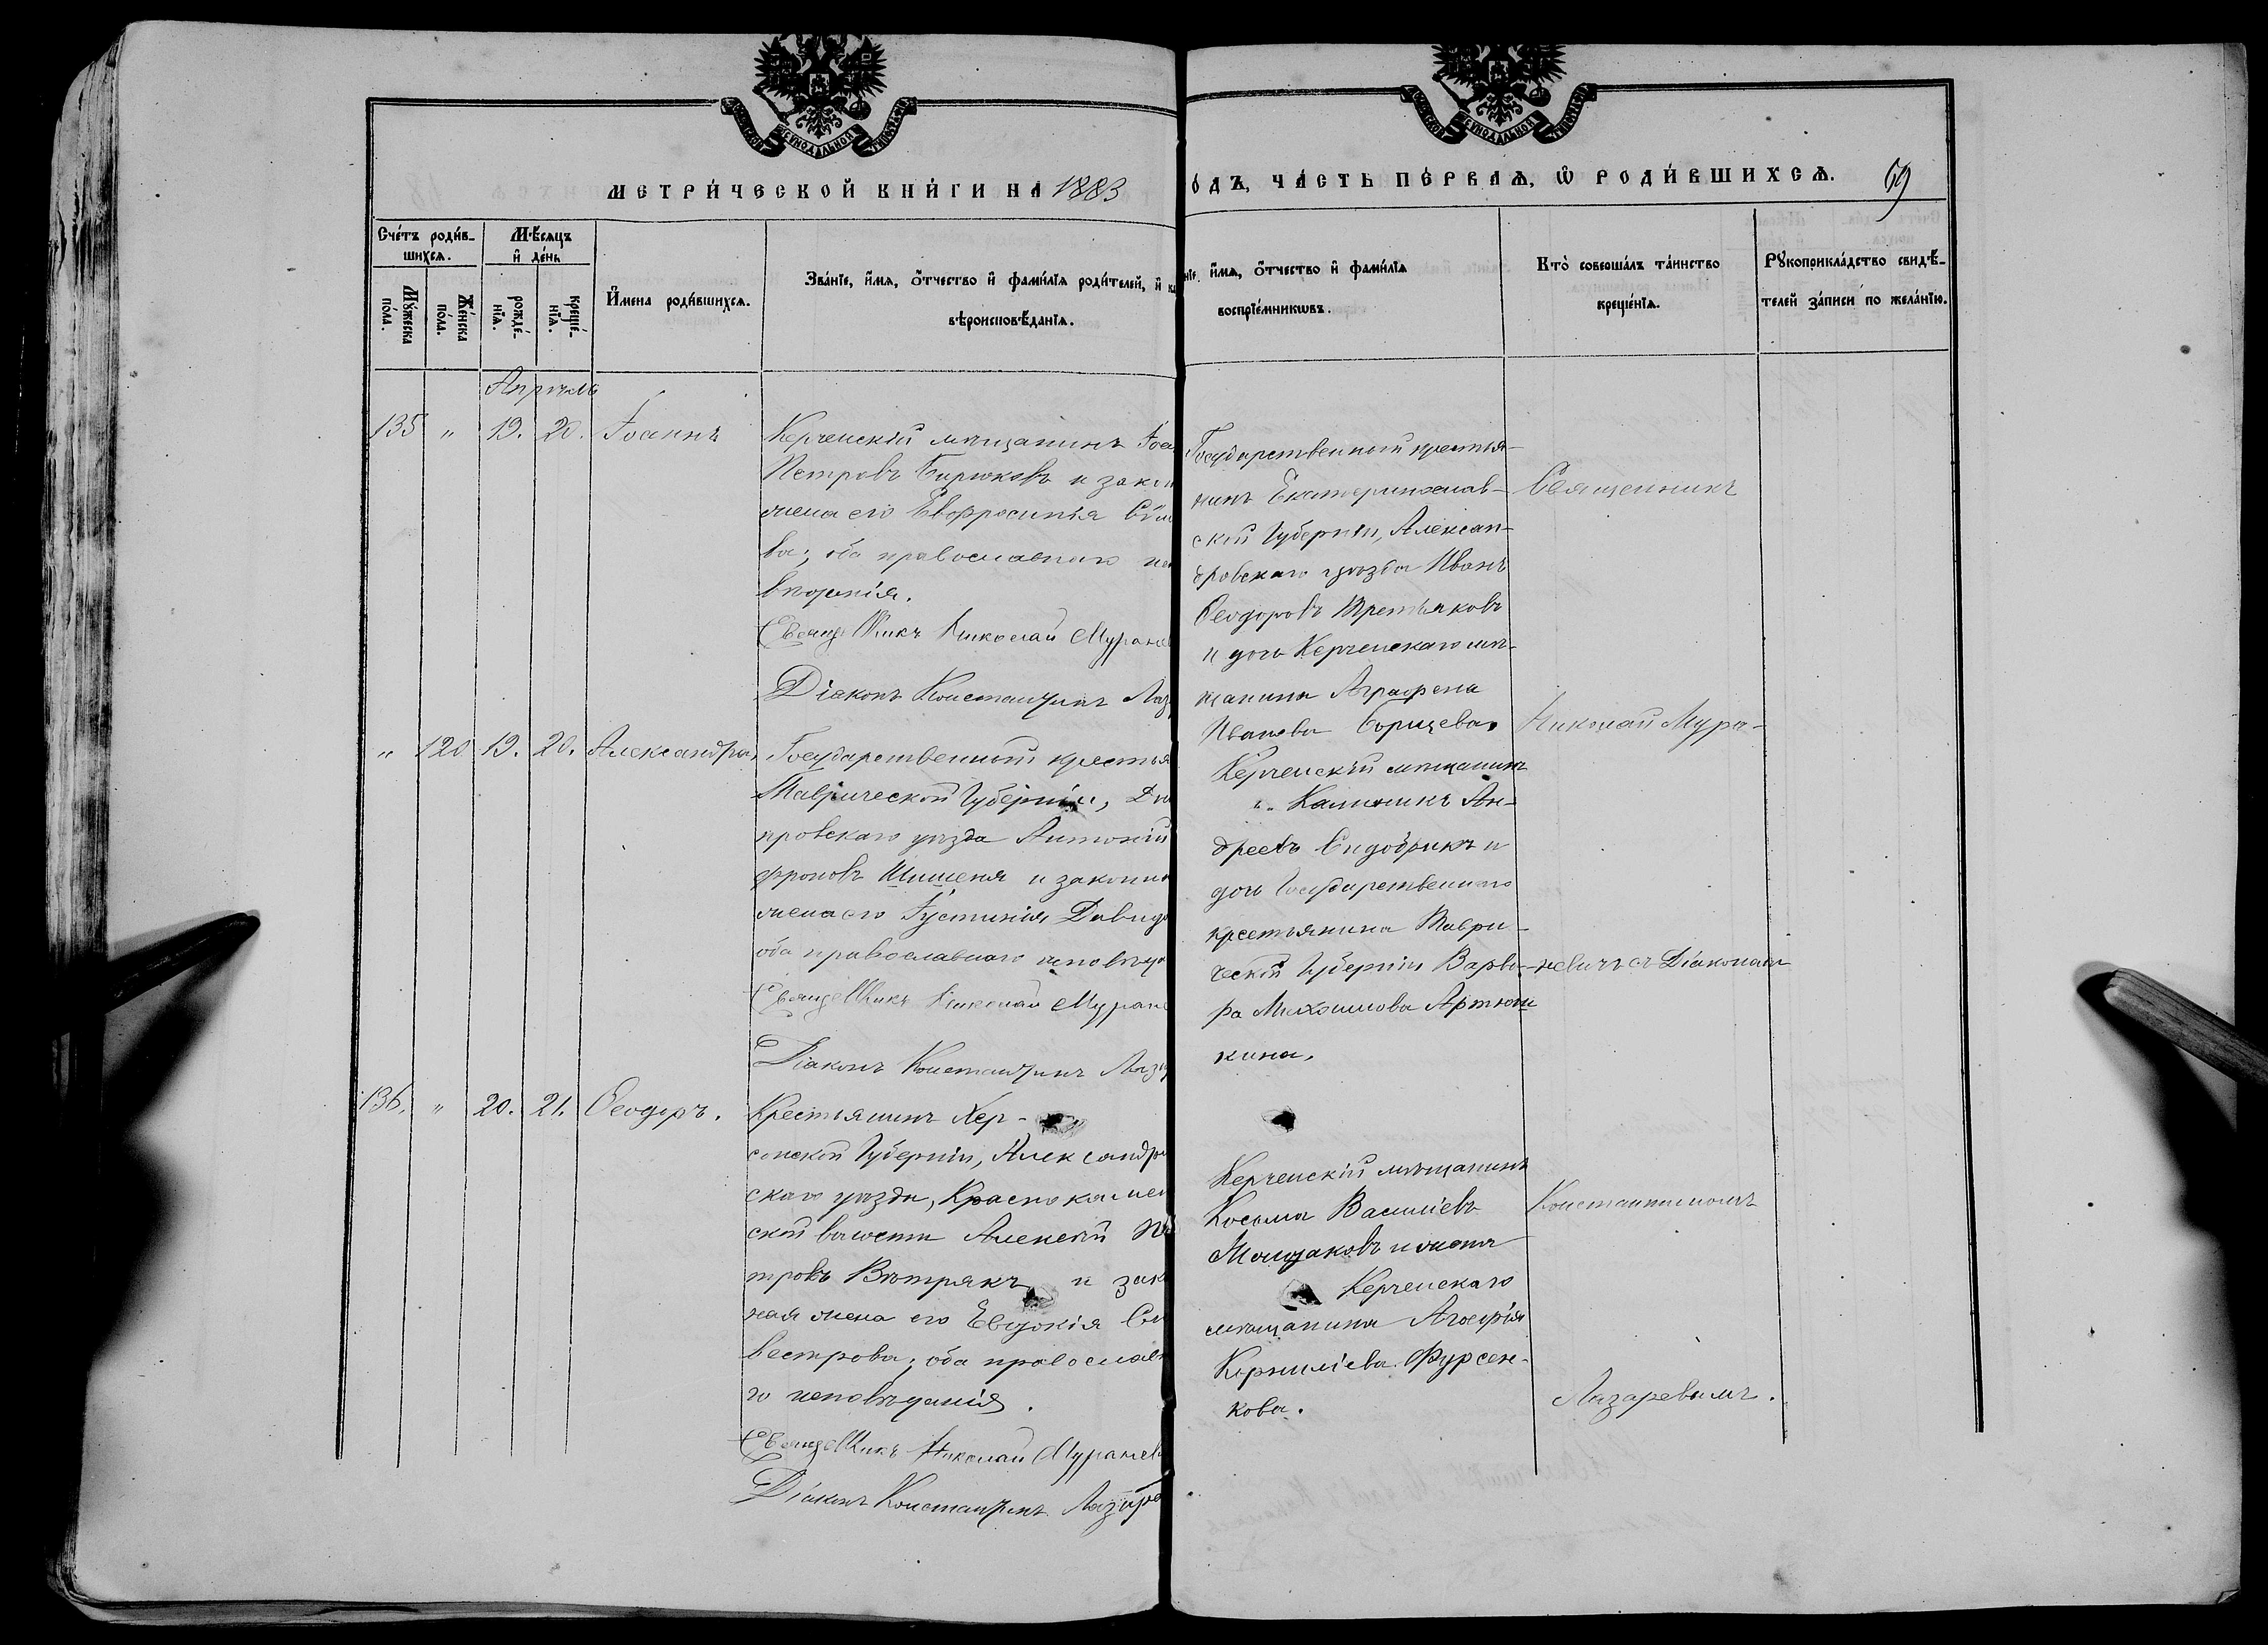 МЕТРИ́ЧЕСКОЙ КНИ́ГИ НА 1883
О́ДЪ, ЧА́СТЬ ПЕ́РВАѦ, Ѡ҆ РОДИ́ВШИХСѦ. 69
Сче́тъ роди́в-
шихсѧ.
Мѣ́сяцъ
и҆ де́нь
Му́жеска
по́ла.
Же́нска
по́ла.
рожде́-
нїѧ.
креще́-
нїѧ.
И҆мена роди́вшихсѧ.
Зва́нїе, и҆́мѧ, ѻ҆́тчество и҆ фами́лїѧ роди́телей, и҆
вѣроисповѣ́данїѧ.
нїе, и҆́мѧ, ѻ҆́тчество и҆ фами́лїѧ
воспрїе́мникѡвъ.
Кто̀ соверша́лъ та́инство
креще́нїѧ.
Рꙋкоприкла́дство свидѣ́-
телей за́писи по жела́нїю.
Апрѣль
135 " 19. 20. Іоаннъ
Керченскій мѣщанинъ Іоа
Петровъ Бирюковъ и закон
жена его Евфросинія
ва; оба православнаго ис
вѣданія.
Священникъ Николай Муране
Діаконъ Константинъ Лаз
Государственный крестья-
нинъ Екатеринослав-
ской Губерніи, Алексан-
дровскаго уѣзда Иванъ
Ѳеодоровъ Третьяковъ
и дочь Керченскаго мѣ-
щанина Аграфена
Иванова Борщева.
Священникъ
Николай Мура-
" 120 19. 20. Александра,
Государственный крестья
Таврической Губерніи, Дн
провскаго уѣзда Антоній
фроновъ Шишеня и законн
жена его Іустинія Давидо
оба православнаго исповѣда
Священникъ Николай Муране
Діаконъ Константинъ Лаза
Керченскій мѣщанинъ
" Калиникъ Ан-
дреевъ Сидобрикъ и
дочь Государственнаго
крестьянина Таври-
ческой Губерніи Варва-
ра Михаилова Артюш
кина.
невичъ съ Діакономъ
136. " 20. 21. Ѳеодоръ.
Крестьянинъ Хер-
сонской Губерніи, Александрій
скаго уѣзда, Краснокамен
ской волости Алексѣй Пе
тровъ Вѣтрякъ и зак
ная жена его Евдокія Си
вестрова; оба православн
го исповѣданія.
Священникъ Николай Муранев
Діаконъ Константинъ Лазаре
Керченскій мѣщанинъ
Косьма Василіевъ
и жена
Керченскаго
мѣщанина Агафія
Корниліева Фурсен-
кова.
Константиномъ
Лазаревымъ.